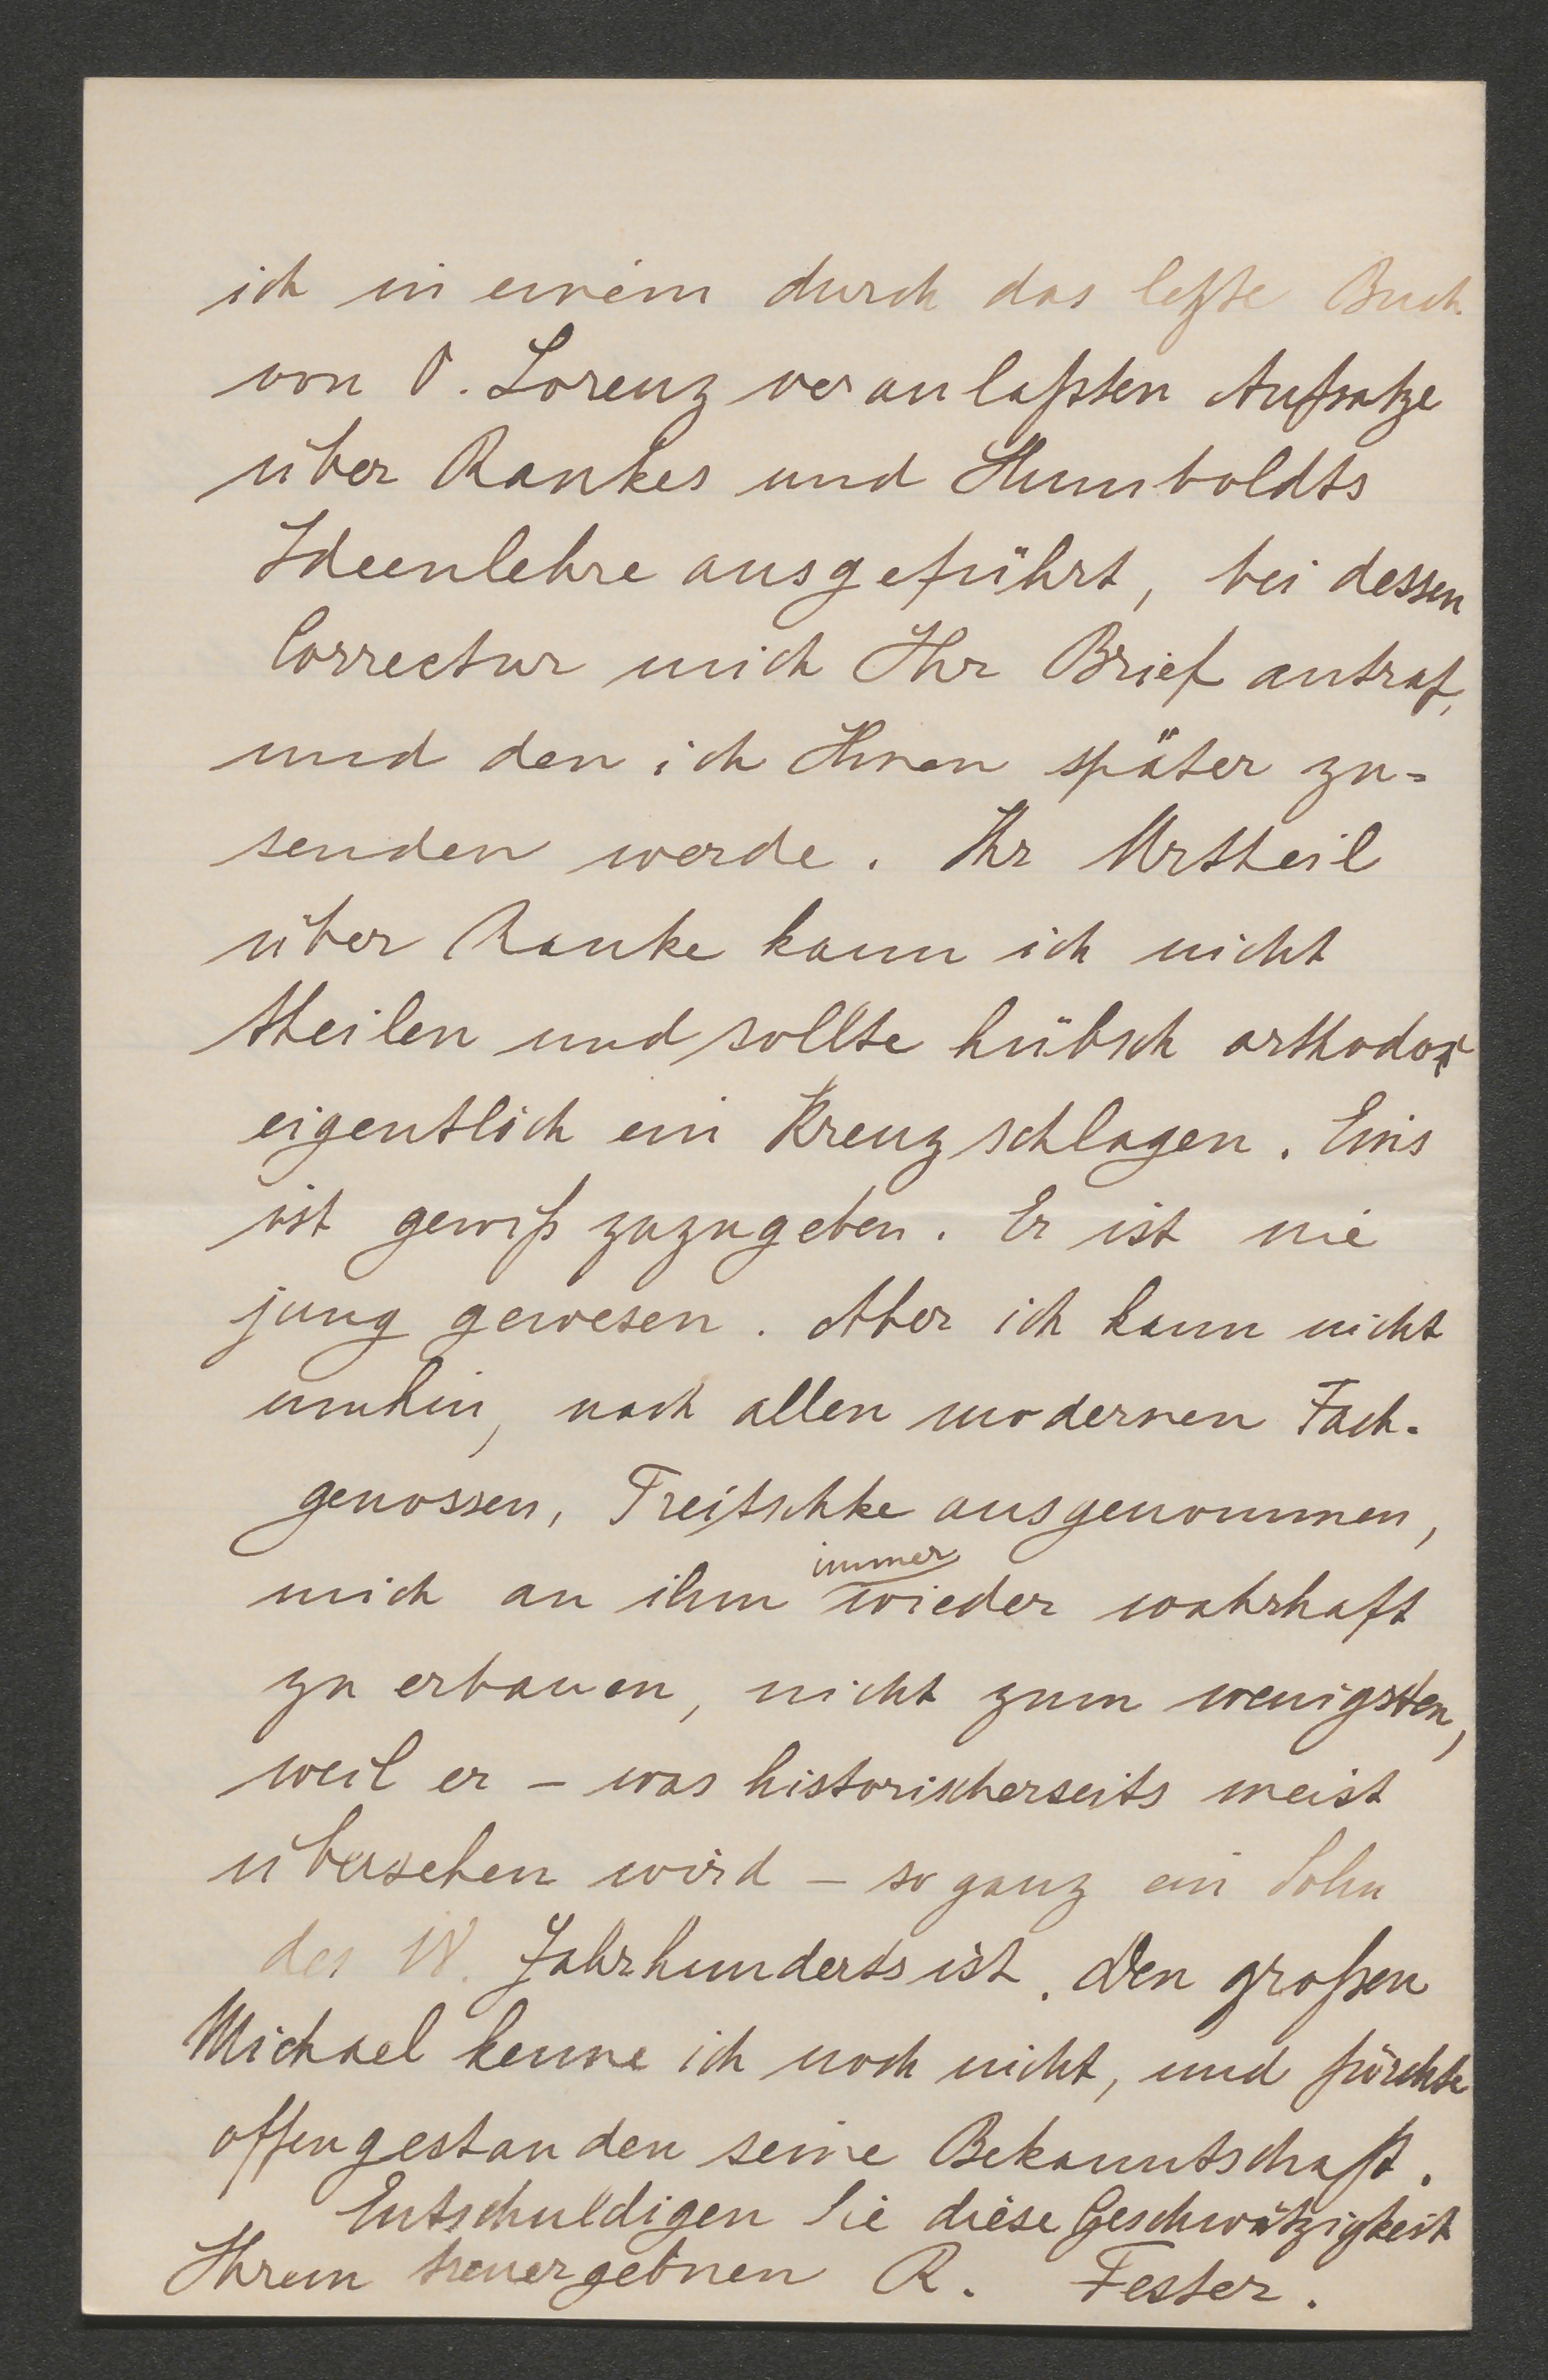 ich in einem durch das letzte Buch
von O. Lorenz veranlaßten Aufsatze
über Rankes und Humboldts
Ideenlehre ausgeführt, bei dessen
Correctur mich Ihr Brief antraf,
und den ich Ihnen später zu-
senden werde. Ihr Urtheil
über Ranke kann ich nicht
theilen und sollte hübsch orthodox
eigentlich ein Kreuz schlagen. Eins
ist gewiß zuzugeben. Er ist nie
jung gewesen. Aber ich kann nicht
umhin, nach allen modernen Fach-
genossen, Treitschke ausgenommen,
mich an ihm immer wieder wahrhaft
zu erbauen, nicht zum wenigsten,
weil er – was historischerseits meist
übersehen wird – so ganz ein Sohn
des 18. Jahrhunderts ist. Den großen
Michael kenne ich noch nicht, und fürchte
offengestanden seine Bekanntschaft.
Entschuldigen Sie diese Geschwätzigkeit
Ihrem treuergebnen R. Fester.